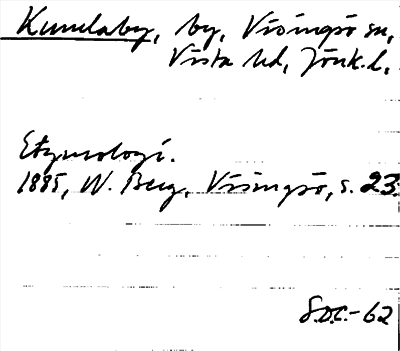 Kumlaby, by, Visingsö sn,
Vista hd, Jönk. l.
Etymologi.
1885, W. Berg, Visingsö, s. 23.
S.D.C.-62